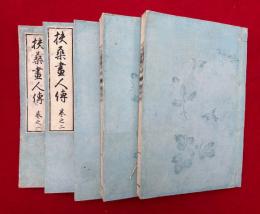 扶桑畫人傳 卷之一
扶桑畫人傳 卷之二